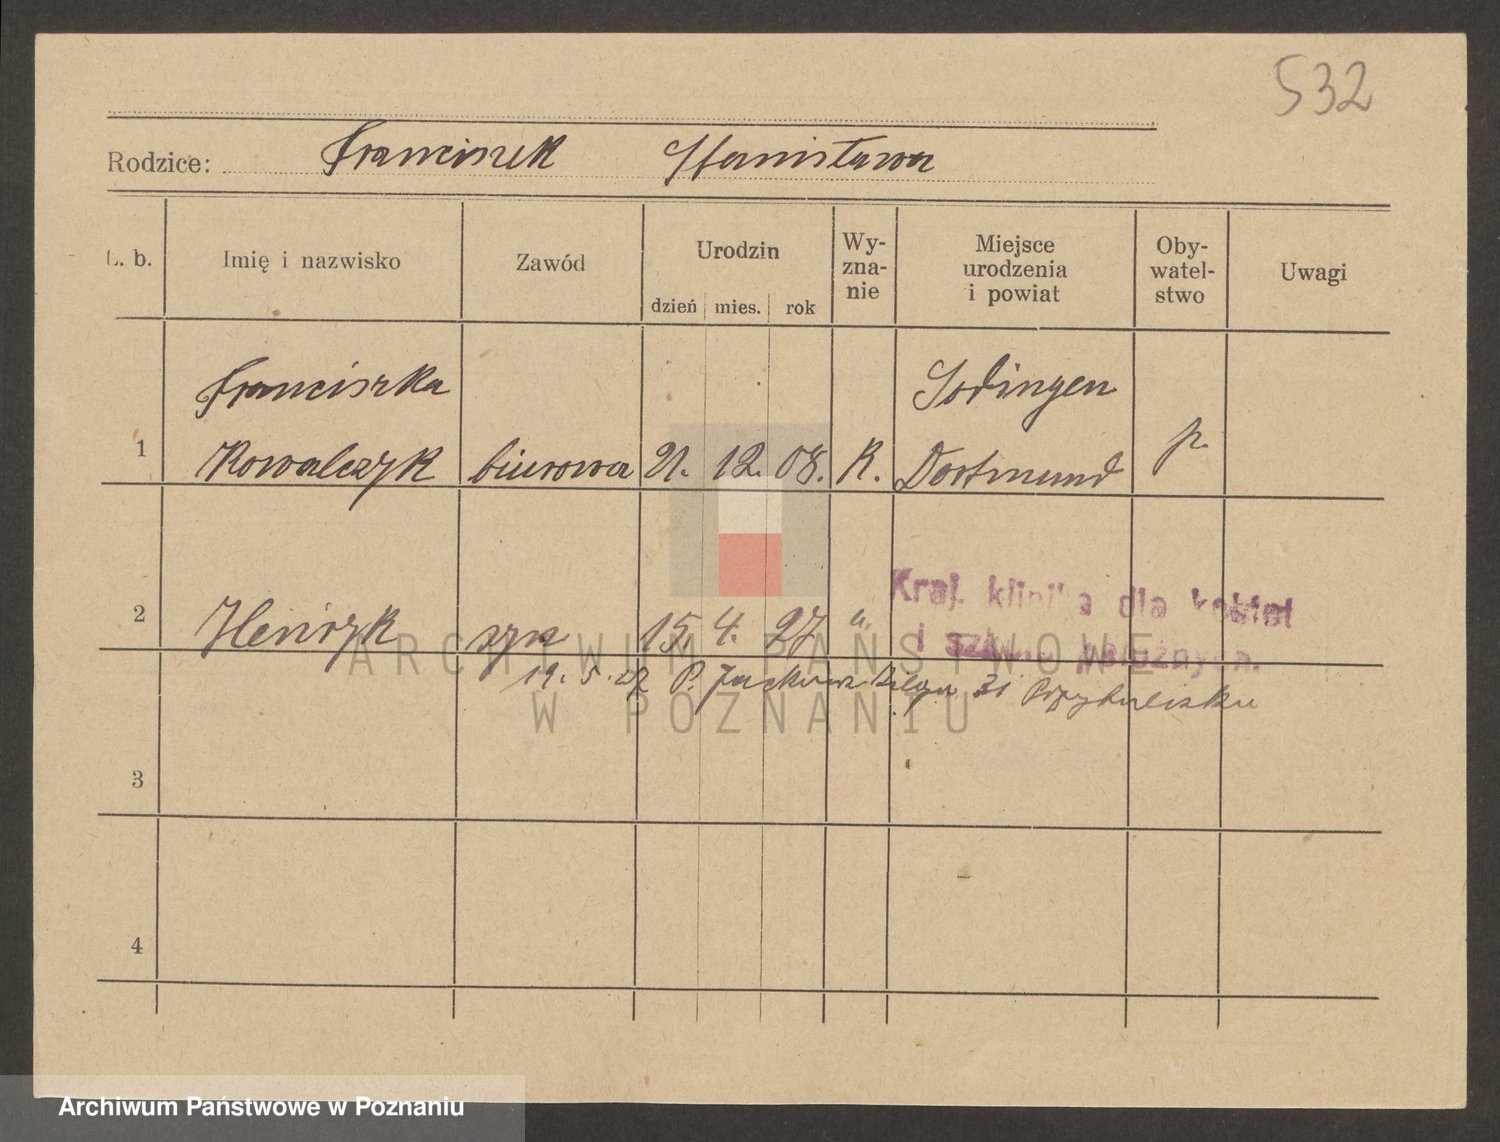 532
Rodzice: Franciszek Stanisława
L. b. Imię i nazwisko Zawód Urodzin dzień mies. rok Wy-zna-nie Miejsce urodzenia i powiat Oby-watel-stwo Uwagi
Franciszka Sodingen
1 Kowalczyk biurowa 21. 12. 08. R. Dortmund p.
Kraj. klinika dla kobiet
2 Henryk syn 15. 4. 27 "
i szkoła położnych.
19. 5. 27 P. 31
3
4
ARCHIWUM PAŃSTWOWE
W POZNANIU
Archiwum Państwowe w Poznaniu